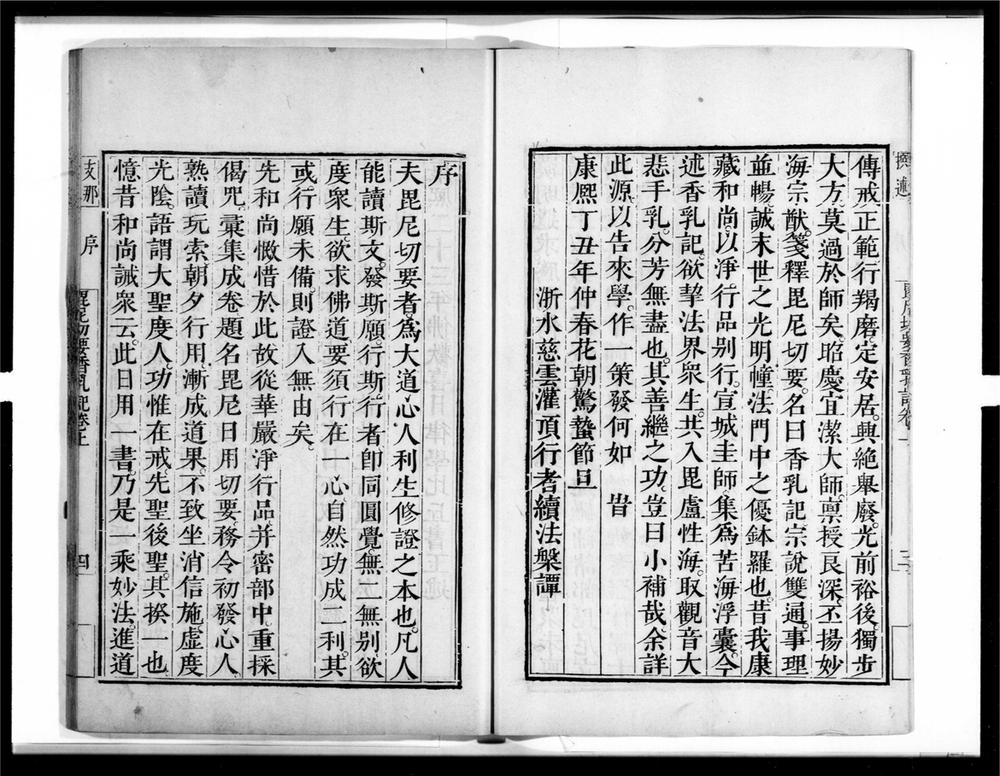 傳戒正範行羯磨定安居興絶舉廢光前裕後獨步
大方莫過於師矣昭慶宜潔大師禀授良深丕揚妙
海宗猷箋釋毘尼切要名曰香乳記宗說雙通事理
並暢誠末世之光明幢法門中之優鉢羅也昔我康
藏和尚以淨行品别行宣城圭師集爲苦海浮囊今
述香乳記欲拏法界衆生共入毘盧性海取觀音大
悲手乳分芳無盡也其善繼之功豈曰小補哉余詳
此源以告來學作一策發何如 旹
康熈丁丑年仲春花朝驚蟄節旦
浙水慈雲灌頂行者續法槃譚
序
夫毘尼切要者爲大道心人利生修證之本也凡人
能讀斯文發斯願行斯行者卽同圓覺無二無别欲
度衆生欲求佛道要須行在一心自然功成二利其
或行願未備則證入無由矣
先和尚慨惜於此故從華嚴淨行品并密部中重採
偈咒彙集成卷題名毘尼日用切要務令初發心人
熟讀玩索朝夕行用漸成道果不致坐消信施虛度
光陰語謂大聖度人功惟在戒先聖後聖其揆一也
憶昔和尚誡衆云此日用一書乃是一乘妙法進道
支那 序 毘尼切要香乳記卷上 四